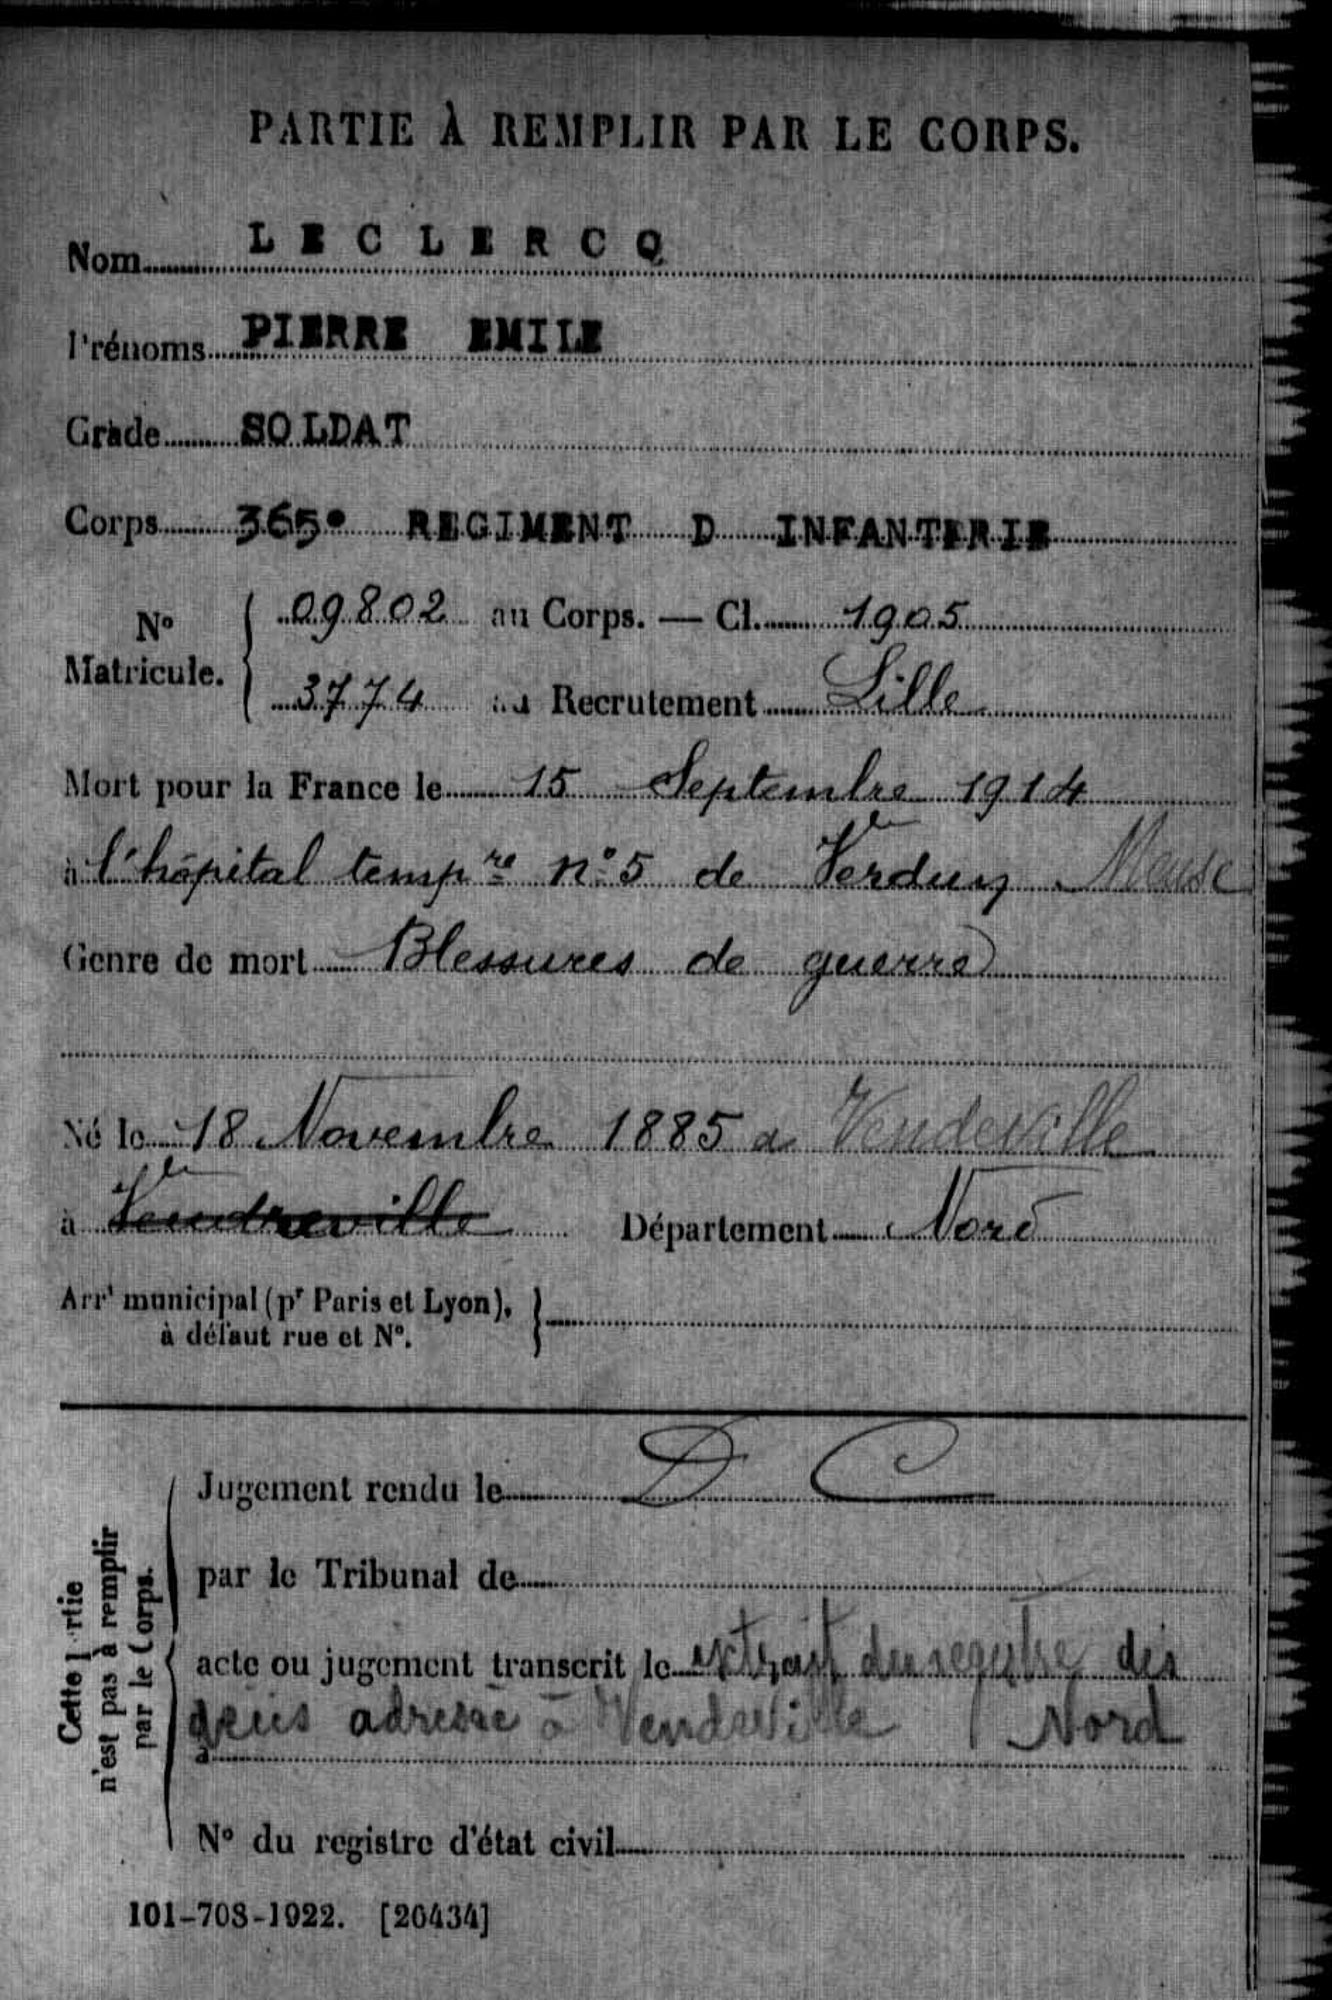 PARTIE À REMPLIR PAR LE CORPS.
Nom LECLERCQ
Prénoms PIERRE EMILE
Grade SOLDAT
Corps 365e REGIMENT D INFANTERIE
No Matricule. 09802 au Corps. — Cl. 1905
3774 au Recrutement Lille
Mort pour la France le 15 Septembre 1914
à l'hôpital tempre no 5 de Verdun Meuse
Genre de mort Blessures de guerre
Né le 18 Novembre 1885 à Vendeville
à Vendreville Département Nord
Arrt municipal (pr Paris et Lyon),
à défaut rue et No.
Cette partie
n'est pas à remplir
par le Corps.
Jugement rendu le D C
par le Tribunal de
acte ou jugement transcrit le extrait du registre des
adressé à Vendeville Nord
à
No du registre d'état civil
101-708-1922. [26434]